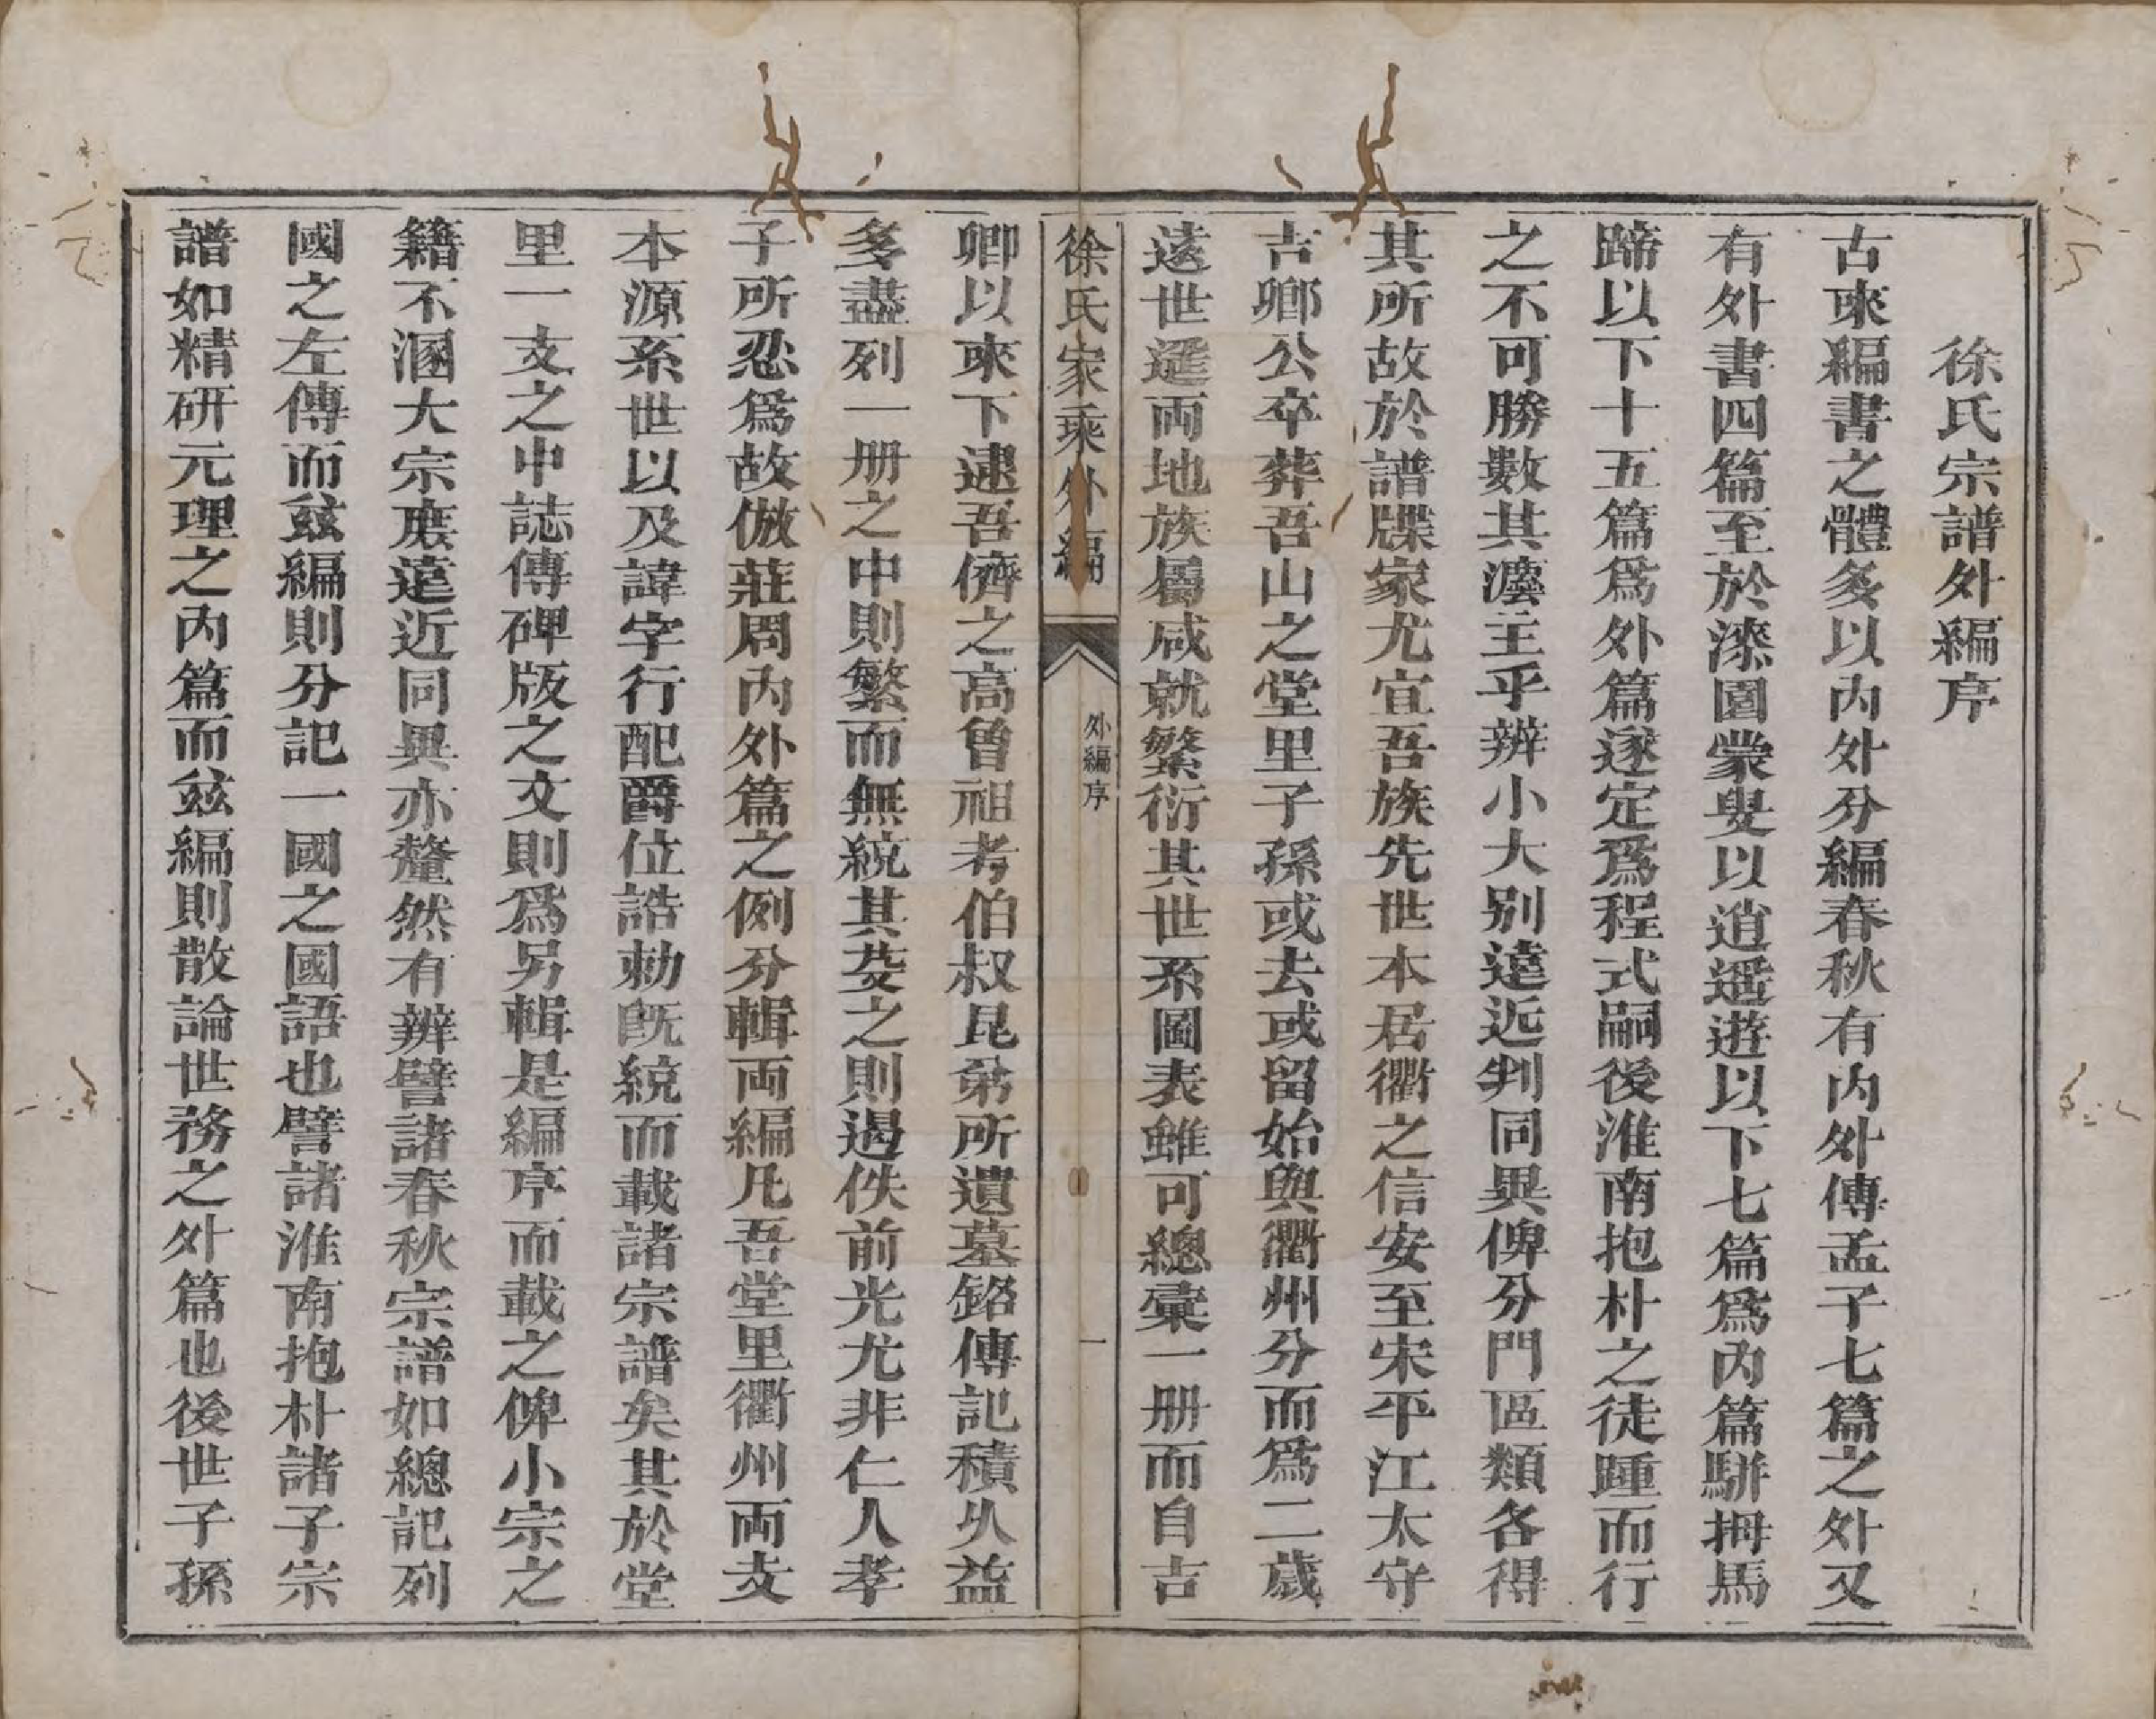 徐氏宗譜外編序
古來編書之體多以內外分編春秋有內外傳孟子七篇之外又
有外書四篇至於漆園蒙叟以逍遙遊以下七篇爲內篇駢拇馬
蹄以下十五篇爲外篇遂定爲程式嗣後淮南抱朴之徒踵而行
之不可勝數其灋主乎辨小大别遠近判同異俾分門區類各得
其所故於譜牒家尤宜吾族先世本居衢之信安至宋平江太守
吉卿公卒葬吾山之堂里子孫或去或留始與衢州分而爲二歲
遠世遞両地族屬咸就繁衍其世系圖表雖可總彙一册而自吉
徐氏家乘外編
外編序
一
卿以來下逮吾儕之高曾祖考伯叔昆弟所遺墓銘傳記積久益
多盡列一册之中則繁而無統其芟之則遏佚前光尤非仁人孝
子所忍爲故倣莊周內外篇之例分輯両編凡吾堂里衢州両支
本源系世以及諱字行配爵位誥勅旣統而載諸宗譜矣其於堂
里一支之中誌傳碑版之文則爲另輯是編序而載之俾小宗之
籍不溷大宗庶遠近同異亦釐然有辨譬諸春秋宗譜如總記列
國之左傳而茲編則分記一國之國語也譬諸淮南抱朴諸子宗
譜如精研元理之內篇而茲編則散論世務之外篇也後世子孫